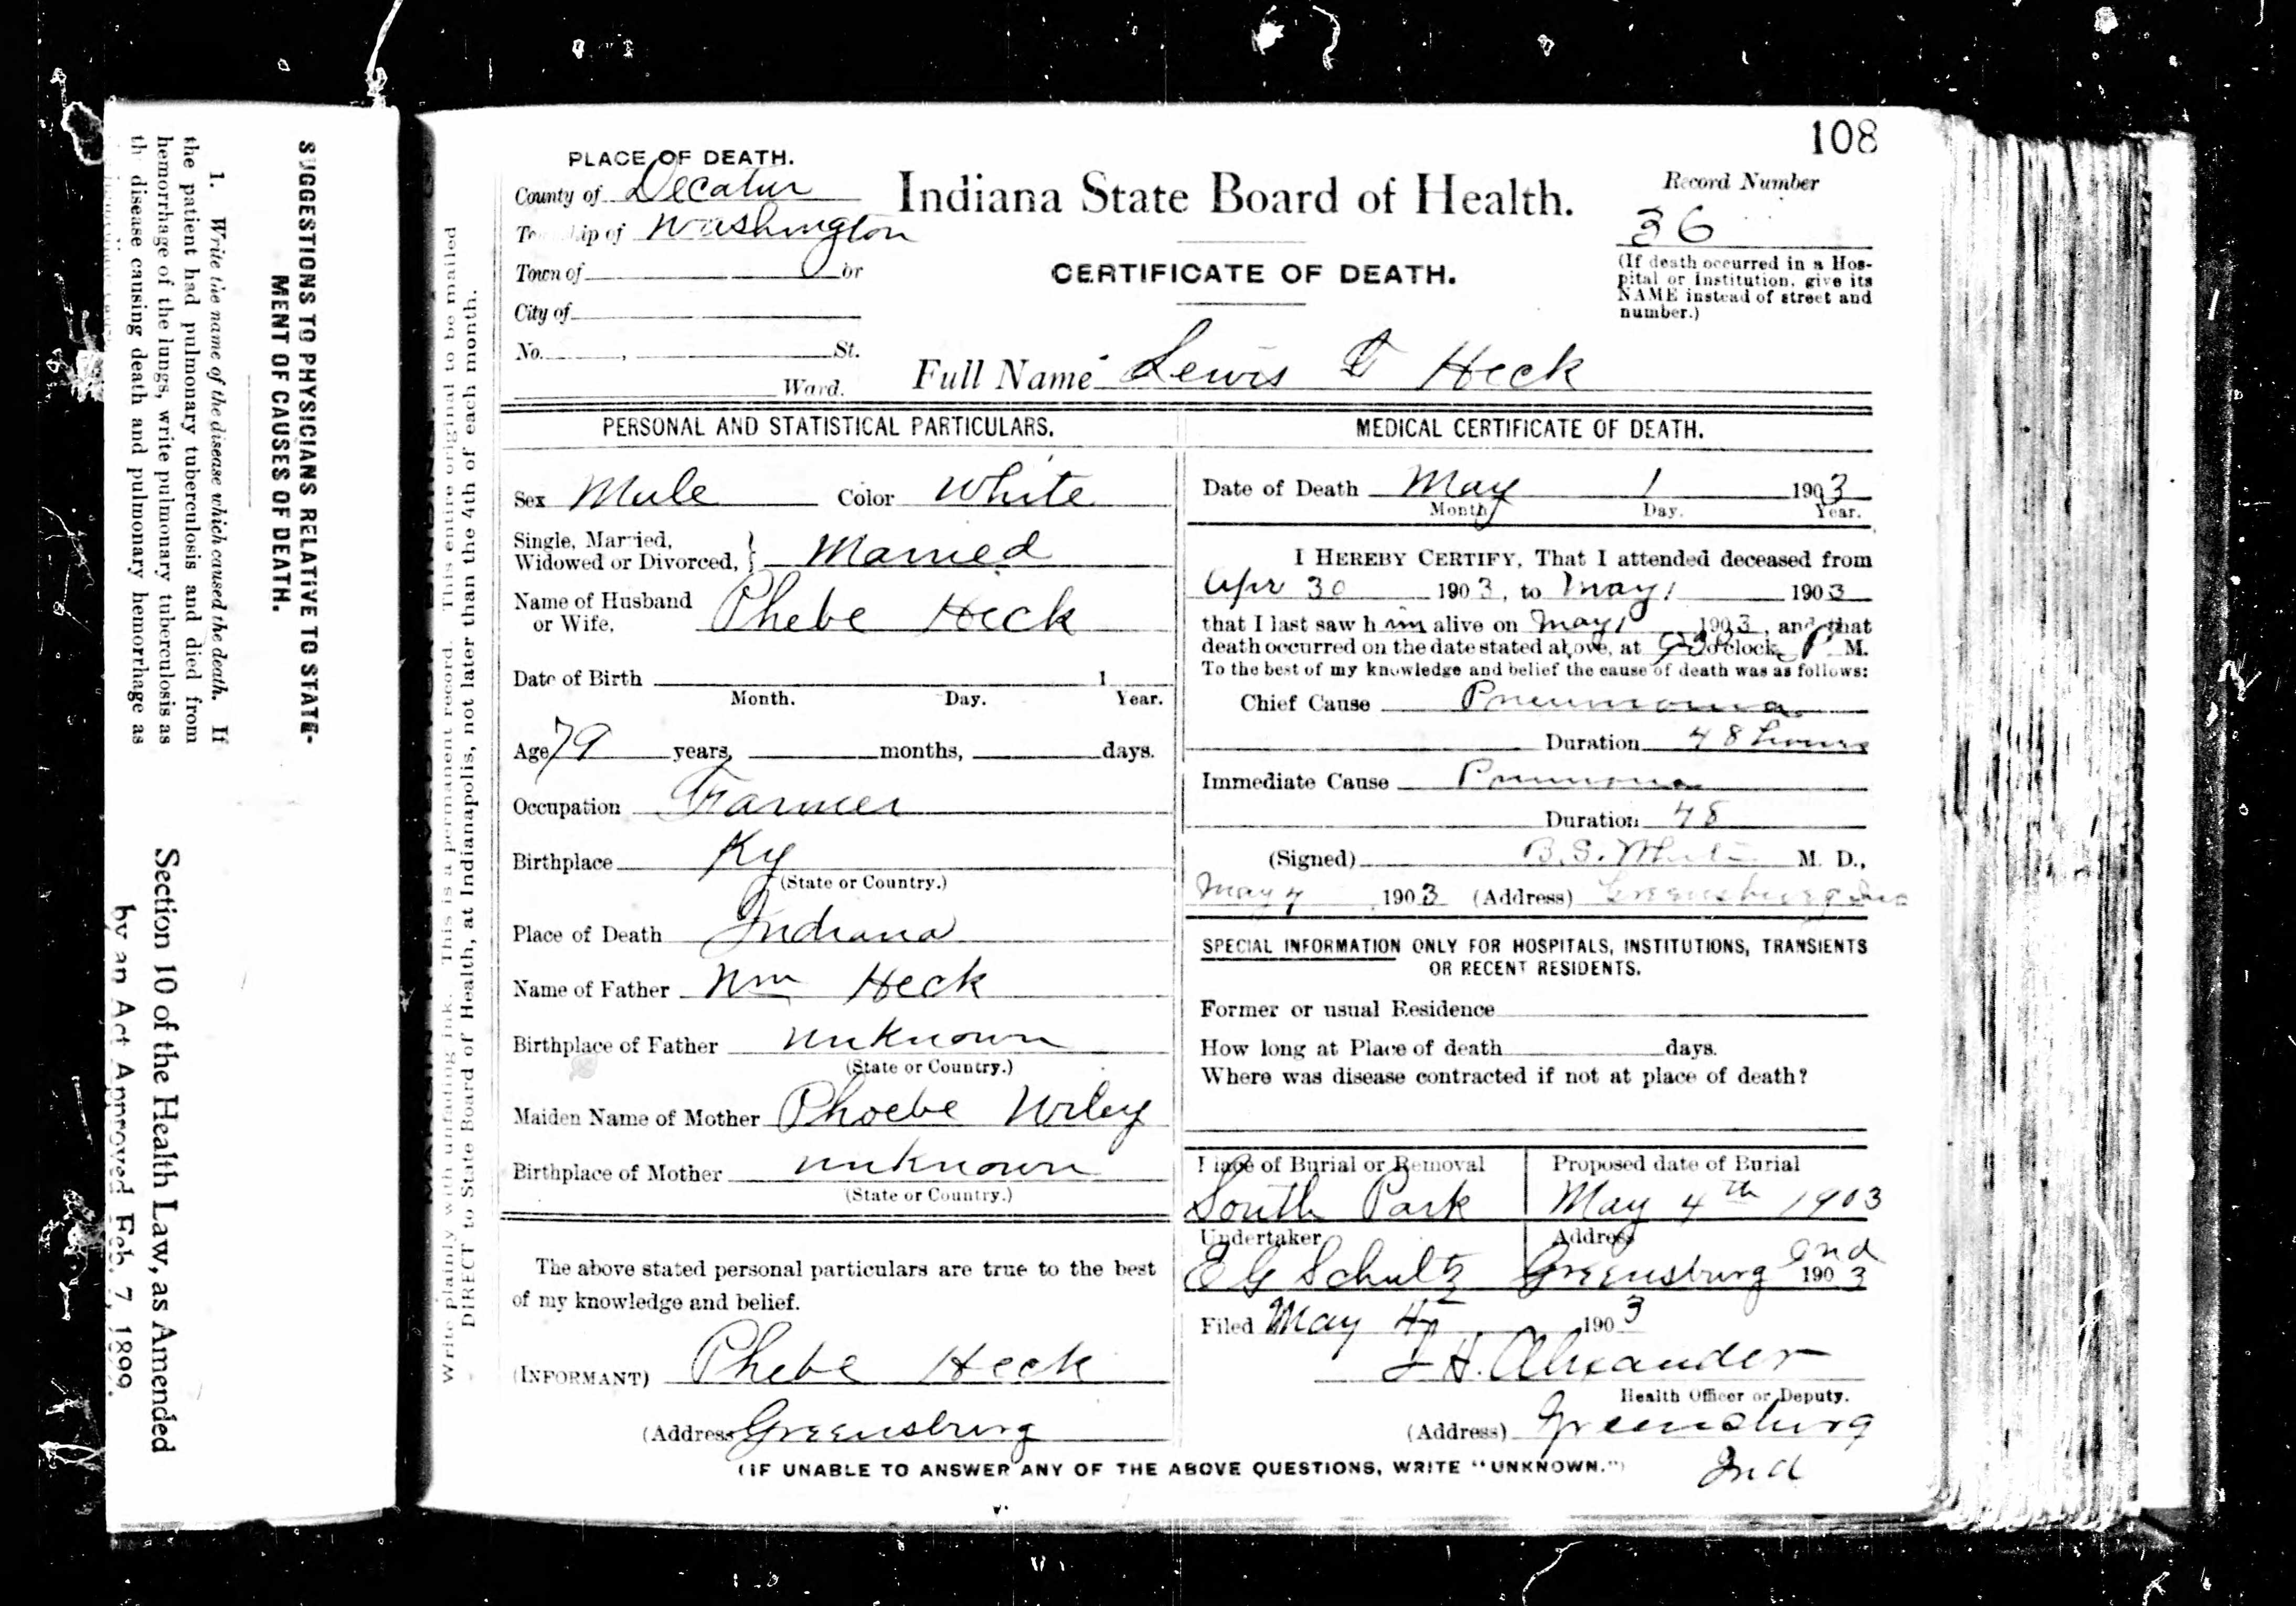 108
PLACE OF DEATH.
County of Decatur
Township of Washington
Town of or
City of
No. , St.
Ward.
Indiana State Board of Health.
CERTIFICATE OF DEATH.
Record Number
36
(If death occurred in a Hos-
pital or Institution, give its
NAME instead of street and
number.)
Full Name Lewis Heck
PERSONAL AND STATISTICAL PARTICULARS.
Sex Male Color White
Single, Married,
Widowed or Divorced, } Married
Name of Husband
or Wife, Phebe Heck
Date of Birth 1
Month. Day. Year.
Age 79 years, months, days.
Occupation Farmer
Birthplace Ky
(State or Country.)
Place of Death Indiana
Name of Father Wm Heck
Birthplace of Father unknown
(State or Country.)
Maiden Name of Mother Phoebe Wiley
Birthplace of Mother unknown
(State or Country.)
The above stated personal particulars are true to the best
of my knowledge and belief.
(INFORMANT) Phebe Heck
(Address Greensburg
MEDICAL CERTIFICATE OF DEATH.
Date of Death May 1 1903
Month Day. Year.
I HEREBY CERTIFY, That I attended deceased from
Apr 30 1903, to May 1 1903
that I last saw him alive on May 1 1903, and that
death occurred on the date stated above, at o'clock P M.
To the best of my knowledge and belief the cause of death was as follows:
Chief Cause Pneumonia
Duration 48 hours
Immediate Cause Pneumonia
Duration 48
(Signed) B.S. M. D.,
May 4 1903 (Address) Greensburg Ind
SPECIAL INFORMATION ONLY FOR HOSPITALS, INSTITUTIONS, TRANSIENTS
OR RECENT RESIDENTS.
Former or usual Residence
How long at Place of death days.
Where was disease contracted if not at place of death?
Place of Burial or Removal
South Park
Proposed date of Burial
May 4th 1903
Undertaker
E G Schultz
Address
Greensburg Ind 1903
Filed May 4 1903
H. Alexander
Health Officer or Deputy.
(Address) Greensburg
Ind
(IF UNABLE TO ANSWER ANY OF THE ABOVE QUESTIONS, WRITE "UNKNOWN.")
Write plainly with unfading ink. This is a permanent record. This entire original to be mailed
DIRECT to State Board of Health, at Indianapolis, not later than the 4th of each month.
SUGGESTIONS TO PHYSICIANS RELATIVE TO STATE-
MENT OF CAUSES OF DEATH.
1. Write the name of the disease which caused the death. If
the patient had pulmonary tuberculosis and died from
hemorrhage of the lungs, write pulmonary tuberculosis as
the disease causing death and pulmonary hemorrhage as
Section 10 of the Health Law, as Amended
by an Act Approved Feb. 7, 1899.